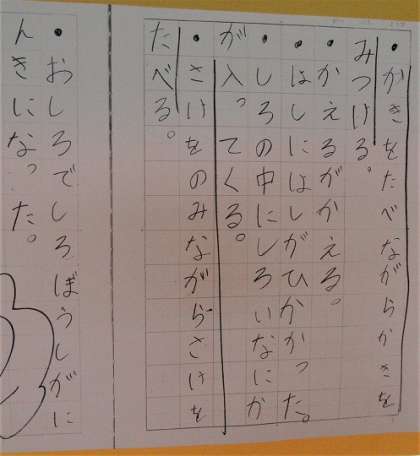 ・かきをたべながらかきを
みつける。
・かえるがかえる。
・はしにはしがひかかった。
・しろの中にしろいなにか
が入ってくる。
・さけをのみながらさけを
たべる。
・おしろでしろぼうしがに
んきになった。